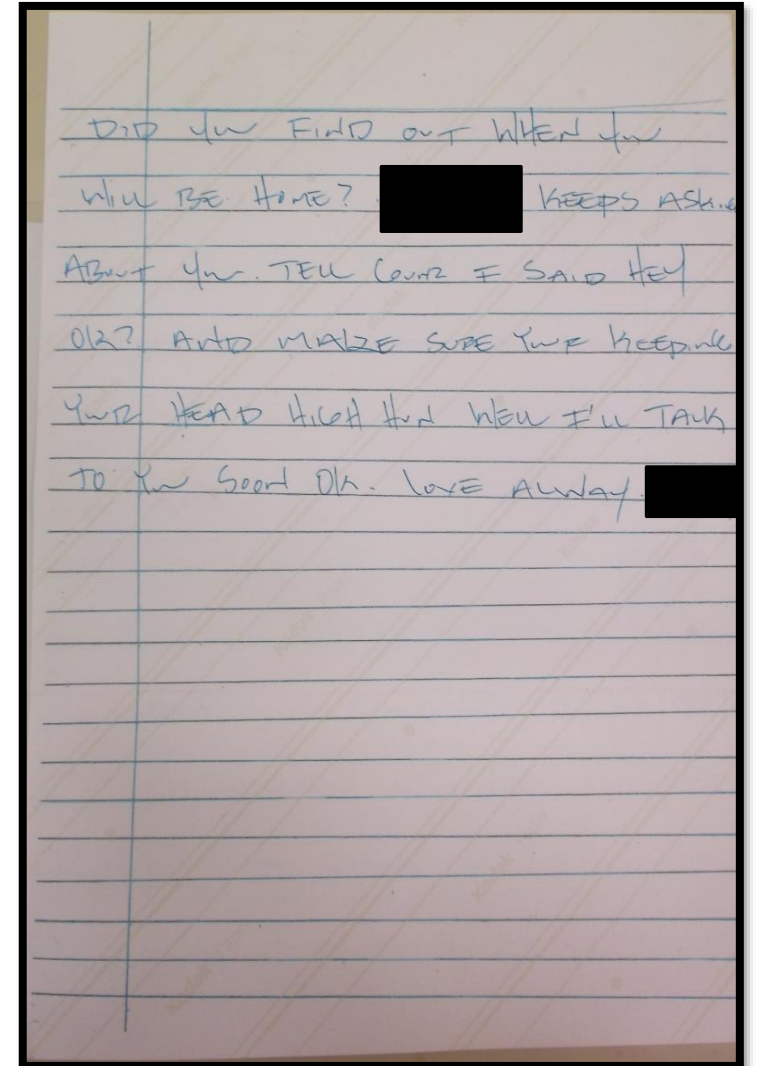 DID YOU FIND OUT WHEN YOU
WILL BE HOME? KEEPS ASKING
ABOUT YOU. TELL I SAID HEY
OK? AND MAKE SURE YOUR KEEPING
YOUR HEAD HIGH HUN WELL I'LL TALK
TO YOU SOON OK. LOVE ALWAY.